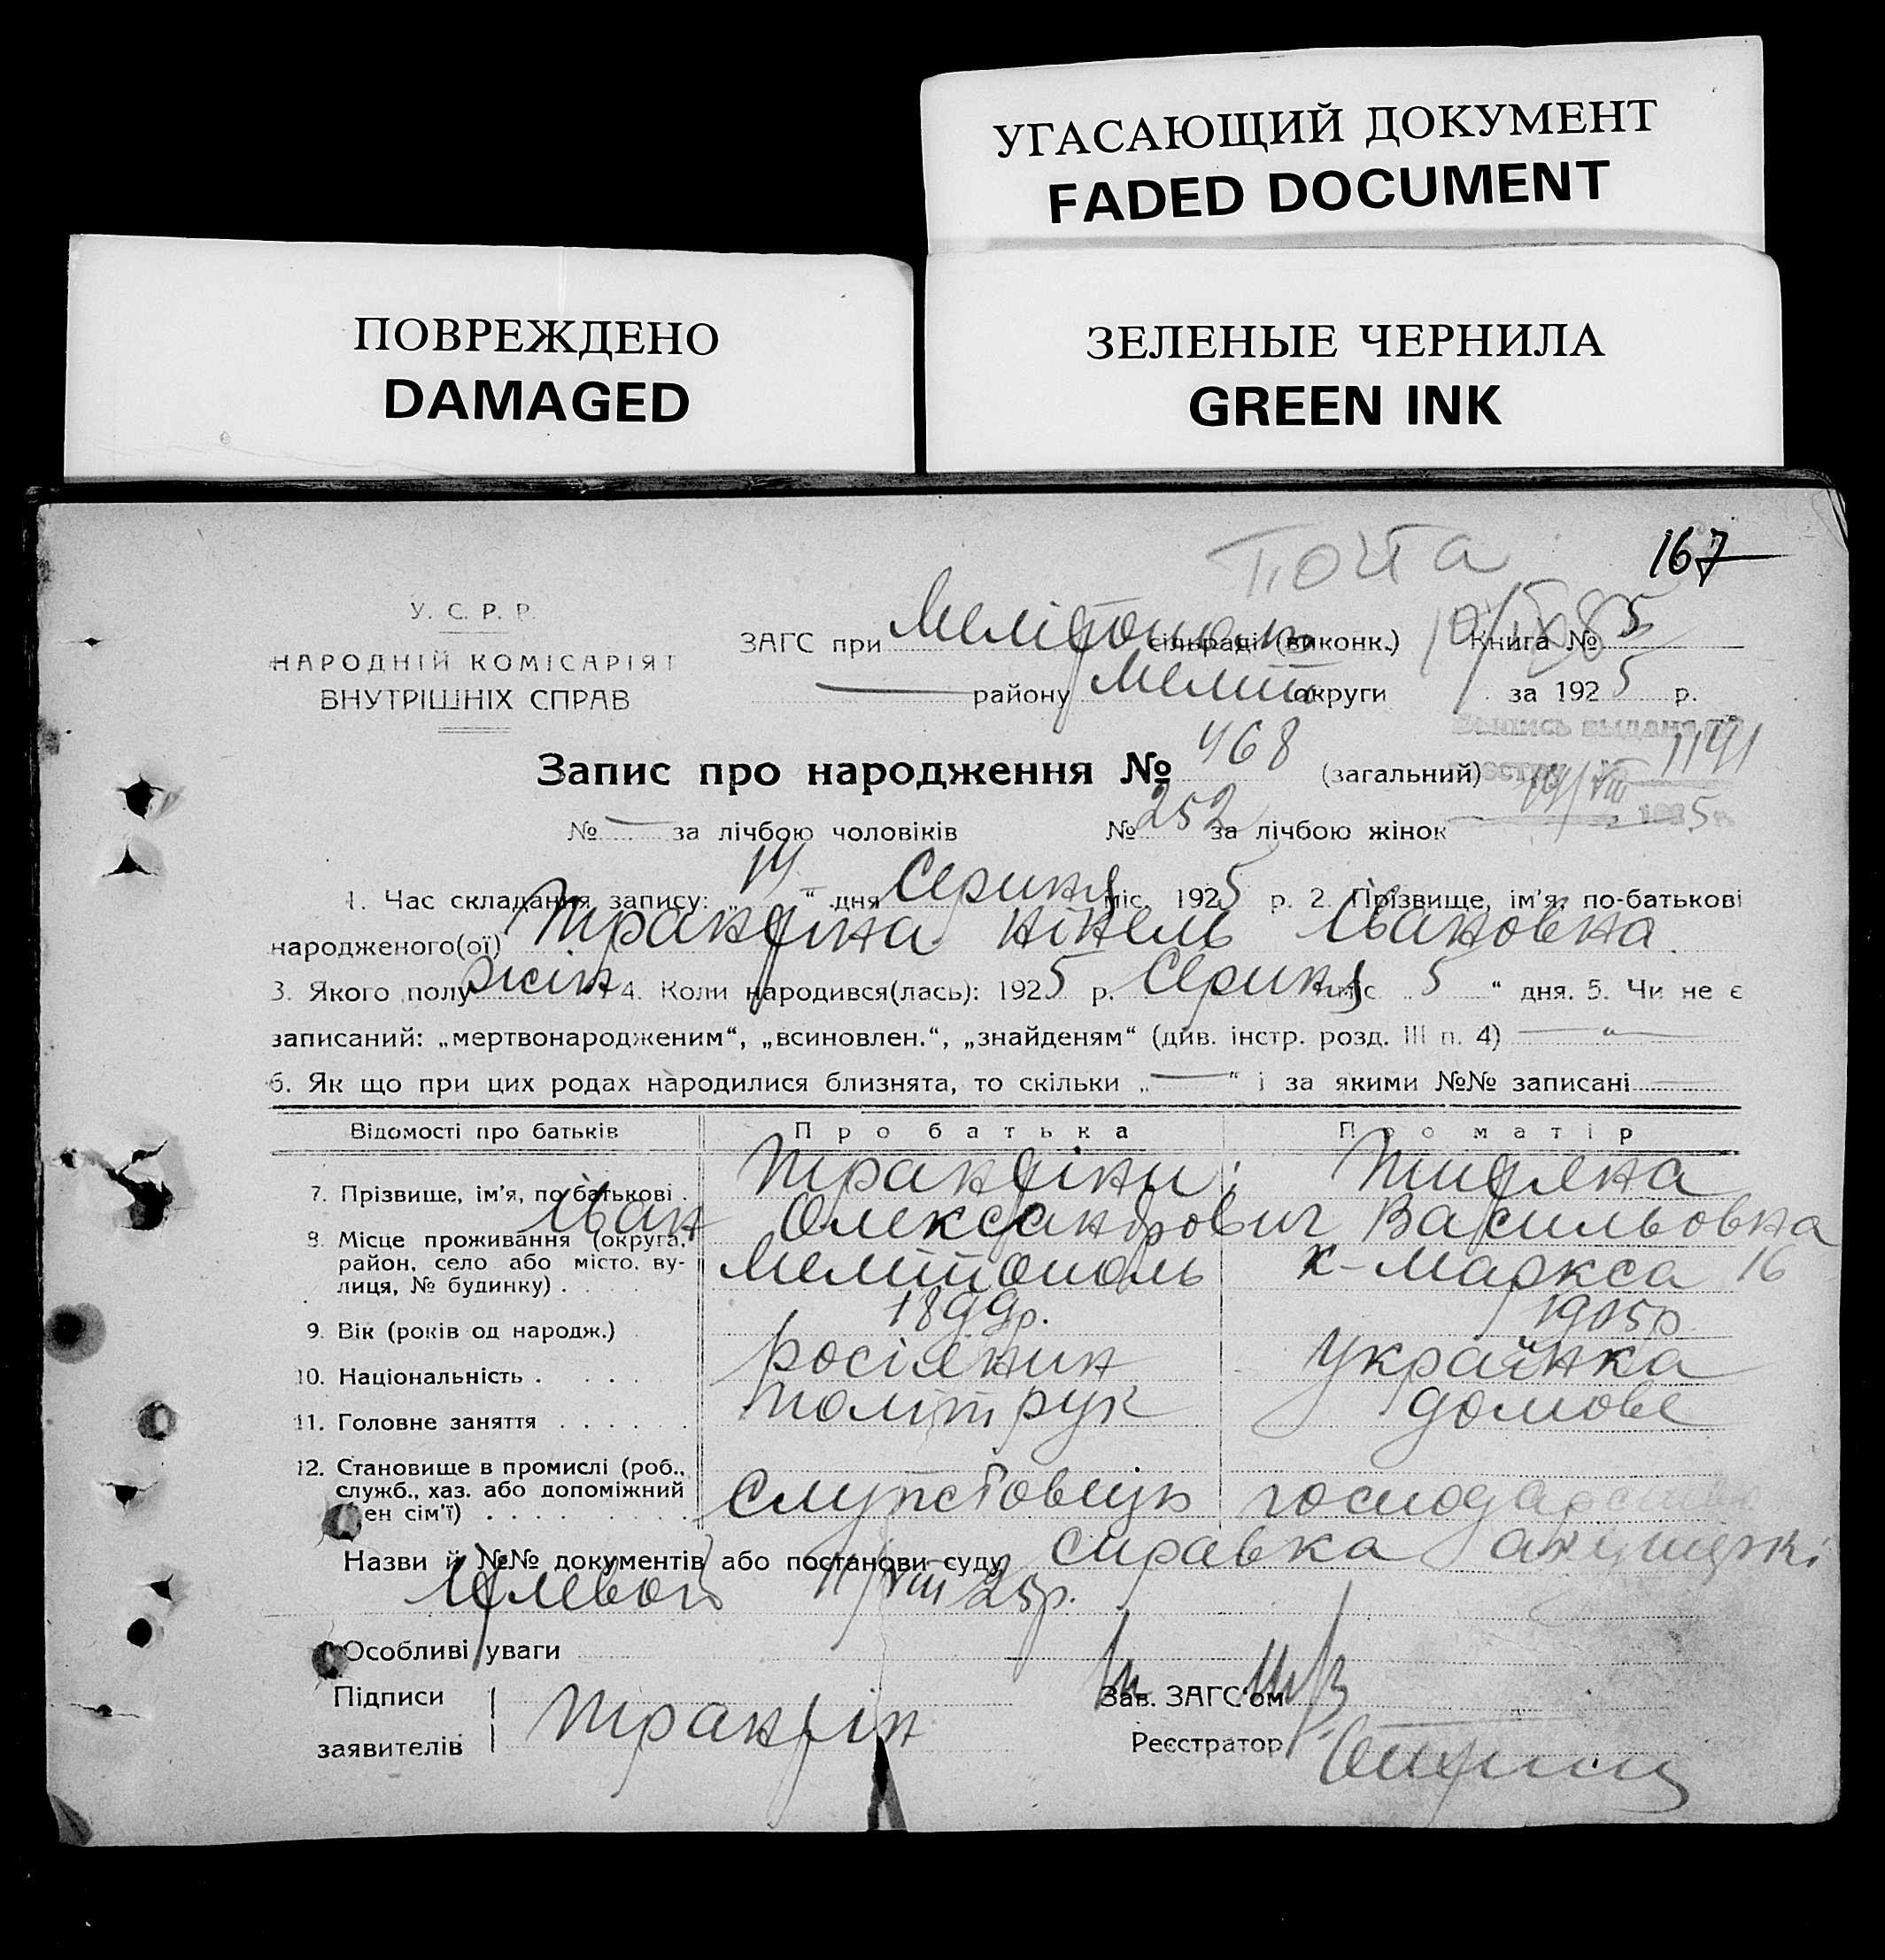 УГАСАЮЩИЙ ДОКУМЕНТ
FADED DOCUMENT
ПОВРЕЖДЕНО
DAMAGED
ЗЕЛЕНЫЕ ЧЕРНИЛА
GREEN INK
Почта
167
У. С. Р. Р.
НАРОДНІЙ КОМІСАРІЯТ
ВНУТРІШНІХ СПРАВ
ЗАГС при Мелітополь сільраді (виконк.) Книга № 5
— району Меліт округи за 1925 р.
Запис про народження № 468 (загальний)
1141
14/VIII 1925
№ — за лічбою чоловіків № 252 за лічбою жінок
1. Час складання запису: „14“ дня Серпня міс. 1925 р. 2. Прізвище, ім'я, по-батькові
народженого(ої) Транфіна Нінель Івановна
3. Якого полу жін 4. Коли народився(лась): 1925 р. Серпня міс. „5“ дня. 5. Чи не є
записаний: „мертвонародженим“, „всиновлен.“, „знайденям“ (див. інстр. розд. III п. 4) — „ —
6. Як що при цих родах народилися близнята, то скільки „—“ і за якими №№ записані —
Відомості про батьків Про батька Про матір
7. Прізвище, ім'я, по-батькові . Транфіни:
Іван Олександрович Васильовна
8. Місце проживання (округа,
район, село або місто, ву-
лиця, № будинку) . Мелітополь К-Маркса 16
9. Вік (років од народж.) 1899р. 1905р
10. Національність . . . . . росіянин Українка
11. Головне заняття . . . . . політрук домове
12. Становище в промислі (роб.,
служб., хаз. або допоміжний
член сім'ї) . . . . . . . . Службовець господарство
Назви й №№ документів або постанови суду Справка акушерки
11/VIII 25р.
Особливі уваги
Підписи
заявителів Транфін
Зав. ЗАГС'ом
Реєстратор